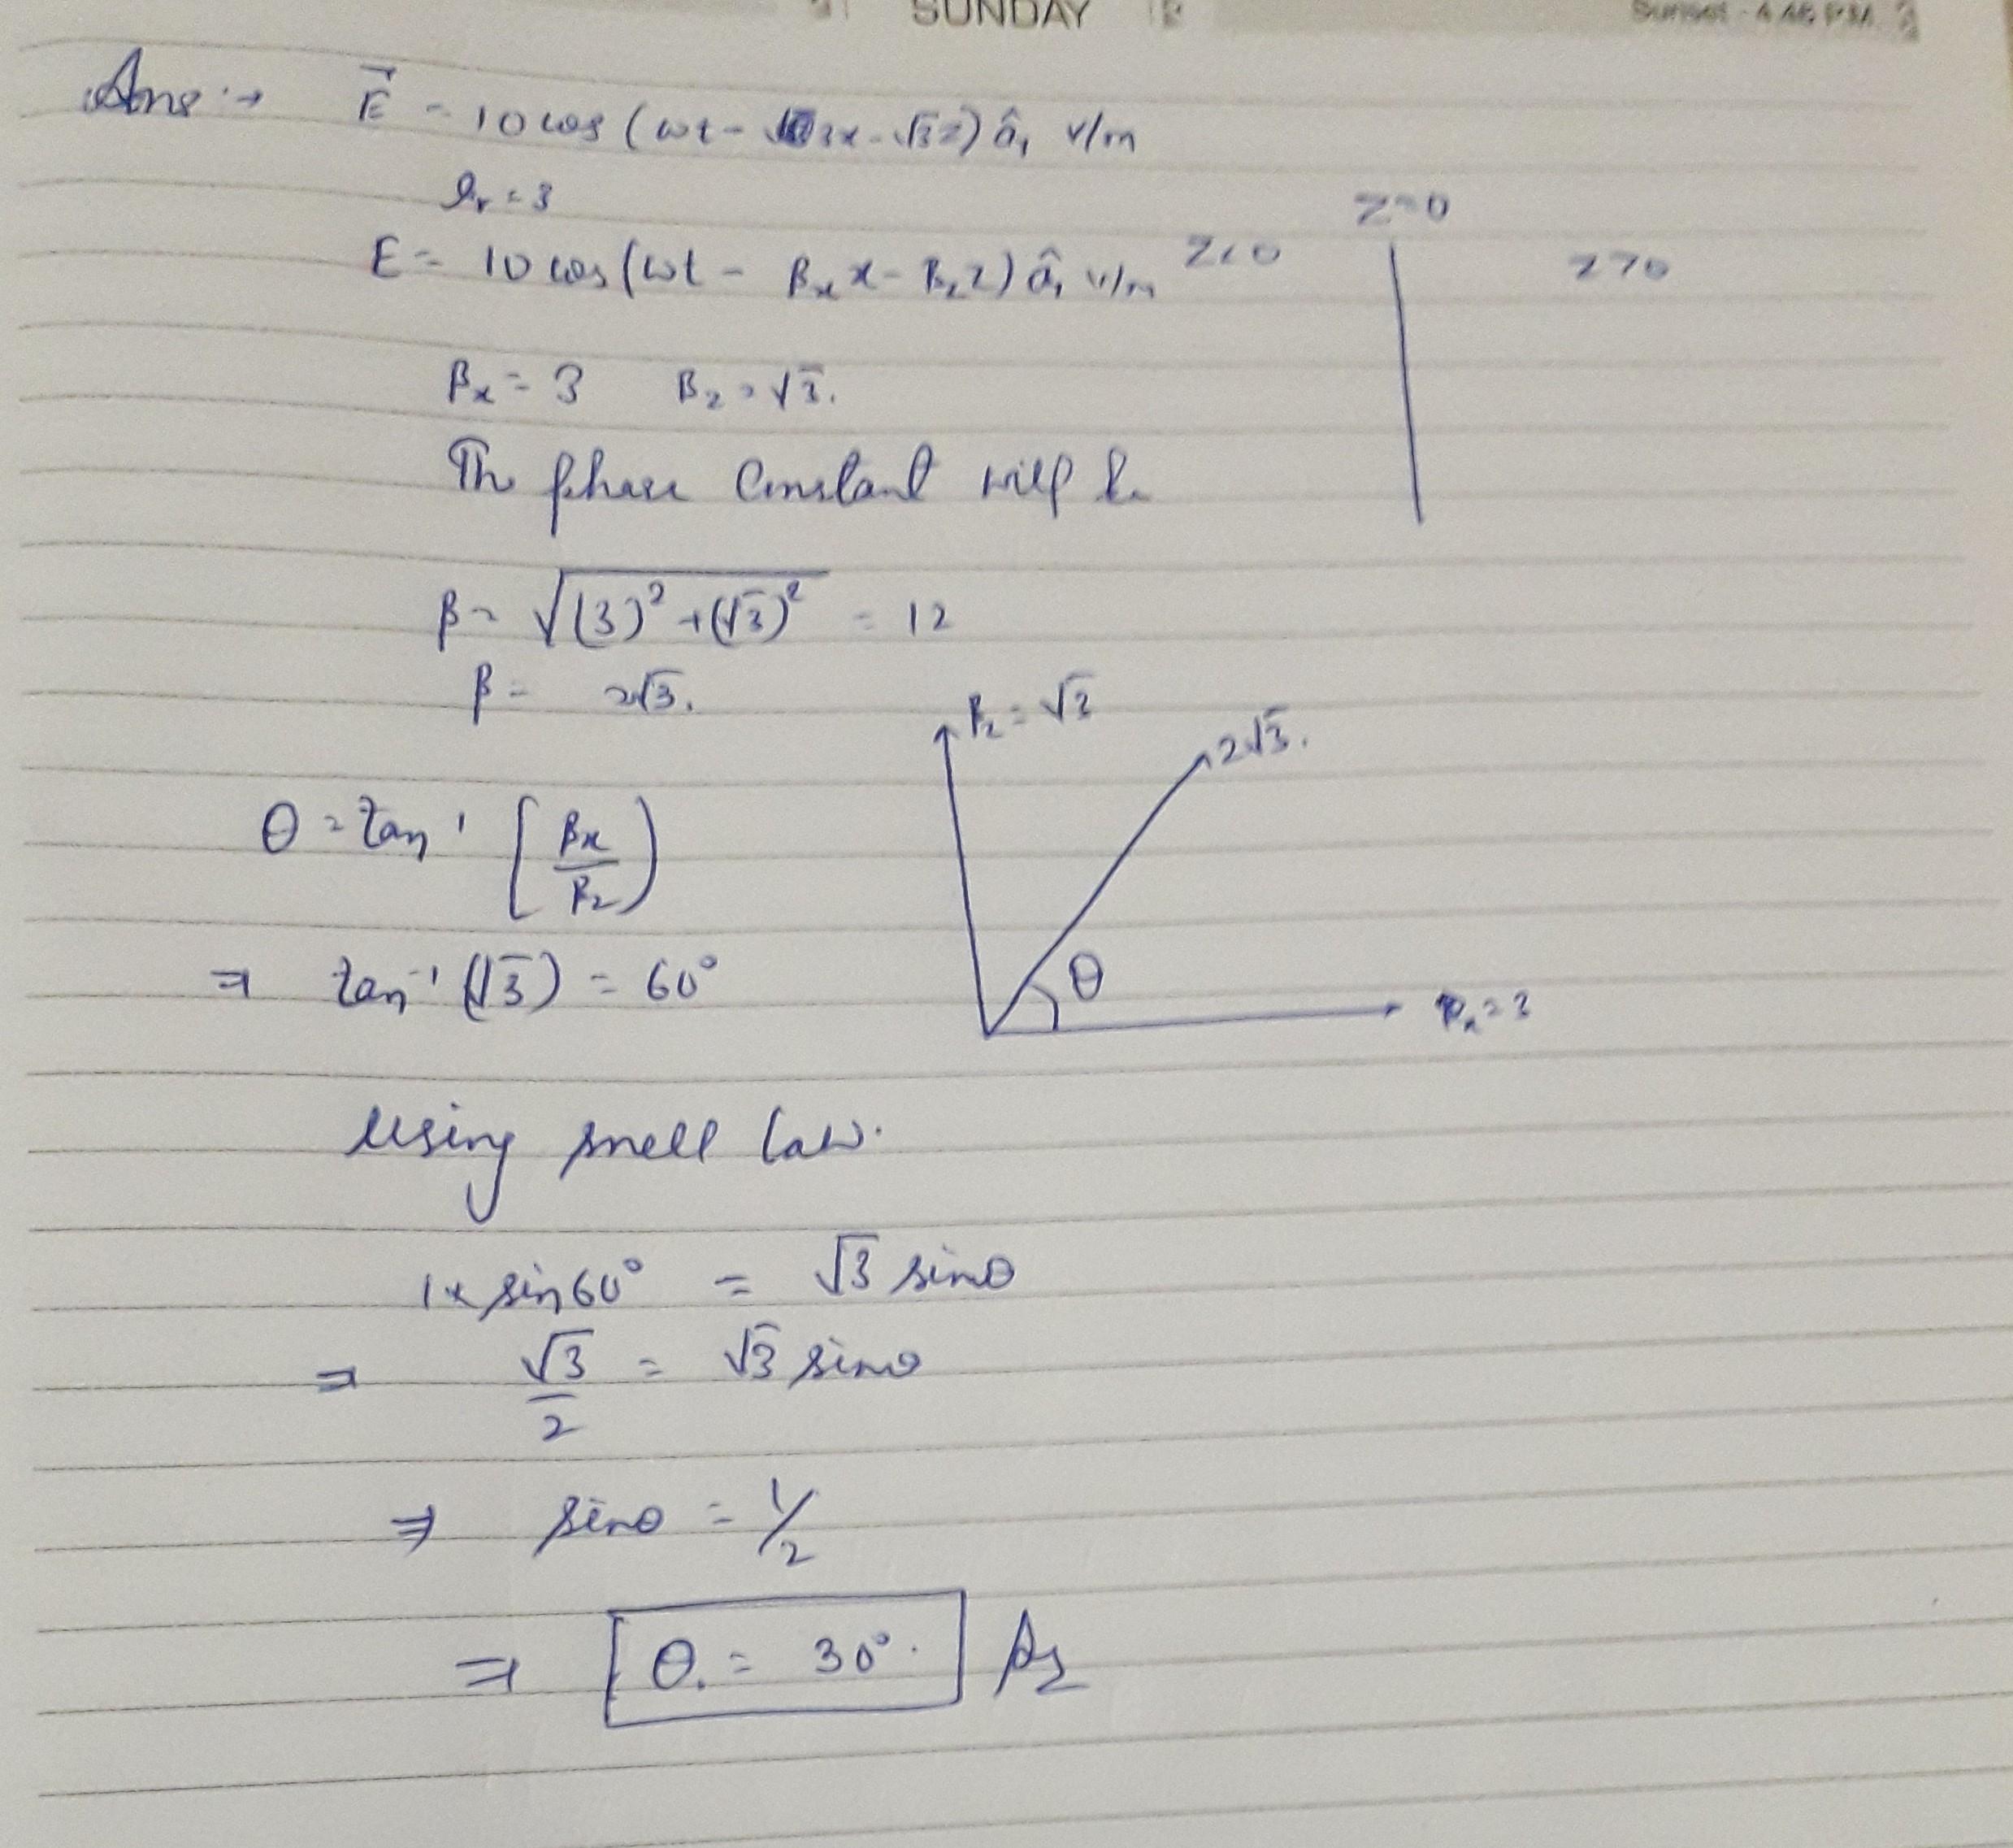 SUNDAY
Sunset - 4.46 P.M.
Ans :→ E⃗ = 10 cos (ωt - 3x - √3z) â, v/m
εr = 3
z=0
E = 10 cos (ωt - βx x - βz z) â, v/m z<0 z>0
βx = 3 βz = √3.
The phase constant will be
β = √(3)² + (√3)² = 12
β = 2√3.
βz = √3
2√3.
θ = tan⁻¹ [βx/βz)
θ
βx = 3
⇒ tan⁻¹ (√3) = 60°
Using snell law.
1 x sin 60° = √3 sinθ
⇒ √3/2 = √3 sinθ
⇒ sinθ = 1/2
⇒ θ. = 30°.